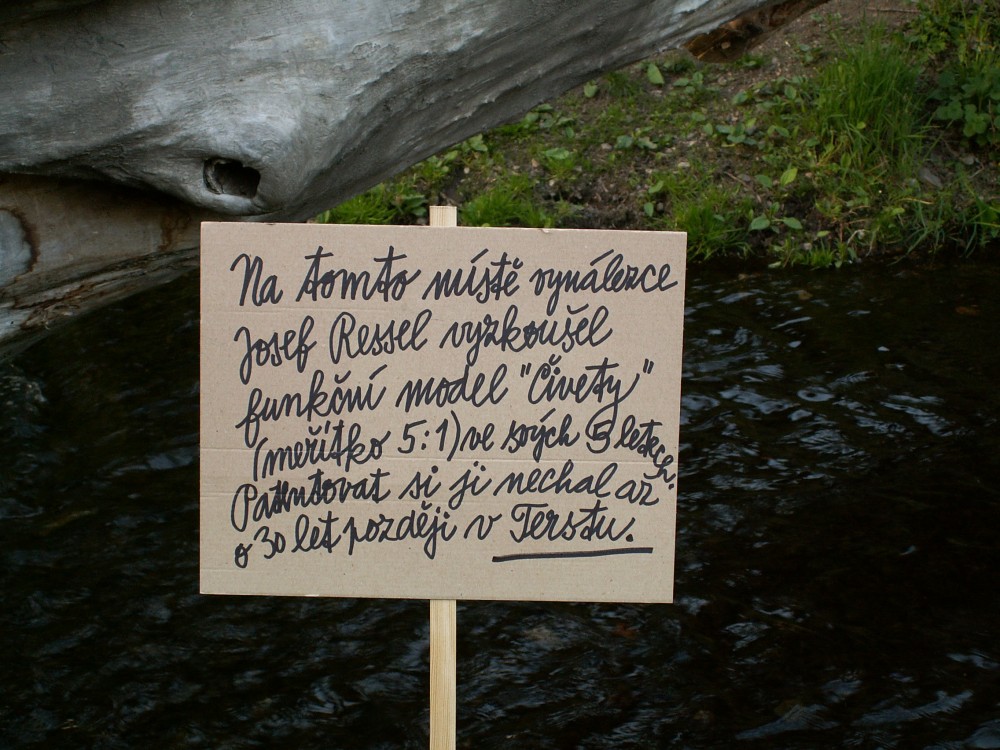 Na tomto místě vynálezce
Josef Ressel vyzkoušel
funkční model "Čivety"
(meřítko 5:1) ve svých 5 letech.
Patentovat si ji nechal až
o 30 let později v Terstu.